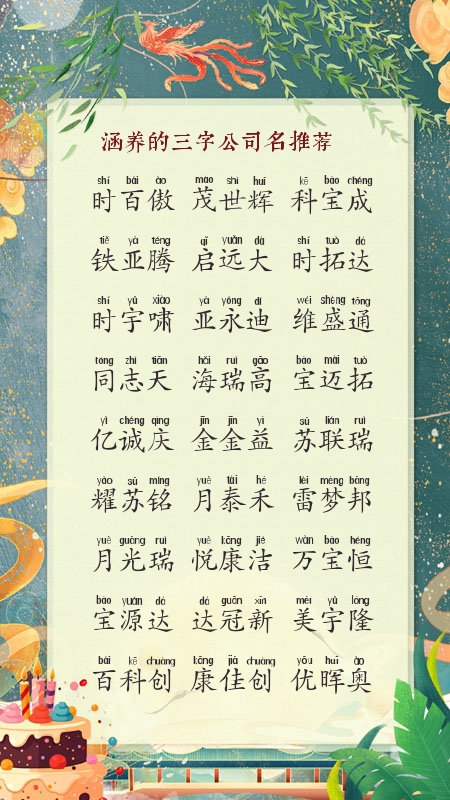 涵养的三字公司名推荐
shí bǎi ào mào shì huī kē bǎo chéng
时百傲 茂世辉 科宝成
tiě yà téng qǐ yuǎn dà shí tuò dá
铁亚腾 启远大 时拓达
shí yǔ xiào yà yǒng dí wéi shèng tōng
时宇啸 亚永迪 维盛通
tóng zhì tiān hǎi ruì gāo bǎo mài tuò
同志天 海瑞高 宝迈拓
yì chéng qìng jīn jīn yì sū lián ruì
亿诚庆 金金益 苏联瑞
yào sū míng yuè tài hé léi mèng bāng
耀苏铭 月泰禾 雷梦邦
yuè guāng ruì yuè kāng jié wàn bǎo héng
月光瑞 悦康洁 万宝恒
bǎo yuán dá dá guān xīn měi yǔ lóng
宝源达 达冠新 美宇隆
bǎi kē chuàng kāng jiā chuàng yōu huī ào
百科创 康佳创 优晖奥